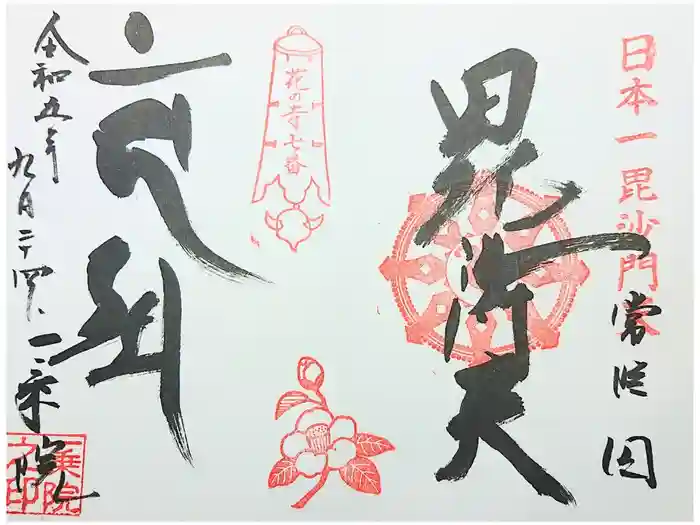 日本一毘沙門
常陸国
毘沙門天
花の寺七番
令和五年
九月二十四日
一乗院
一乗院
之印